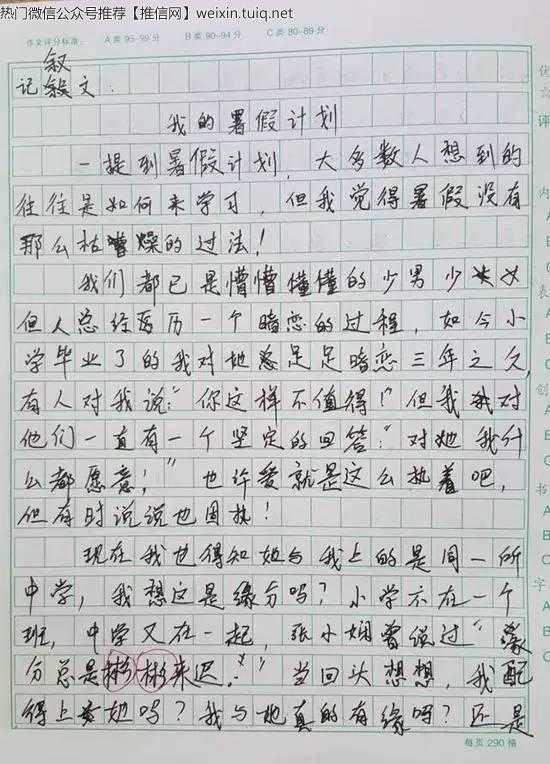 热门微信公众号推荐【推信网】weixin.tuiq.net
作文评分标准： A类 95-99分 B类 90-94分 C类 80-89分
叙
记 文：
我的暑假计划
一提到暑假计划，大多数人想到的
往往是如何来学习，但我觉得暑假没有
那么枯燥的过法！
我们都已是懵懵懂懂的少男少女
但人总经历一个暗恋的过程，如今小
学毕业了的我对她足足暗恋三年之久，
有人对我说：“你这样不值得！”但我对
他们一直有一个坚定的回答：“对她我什
么都愿意！” 也许爱就是这么执着吧，
但有时说说也固执！
现在我也得知她与我上的是同一所
中学，我想这是缘分吗？小学不在一个
班，中学又在一起，张小娴曾说过“缘
分总是彬彬来迟。” 当回头想想，我配
得上她吗？我与她真的有缘吗？还是
每页 290 格